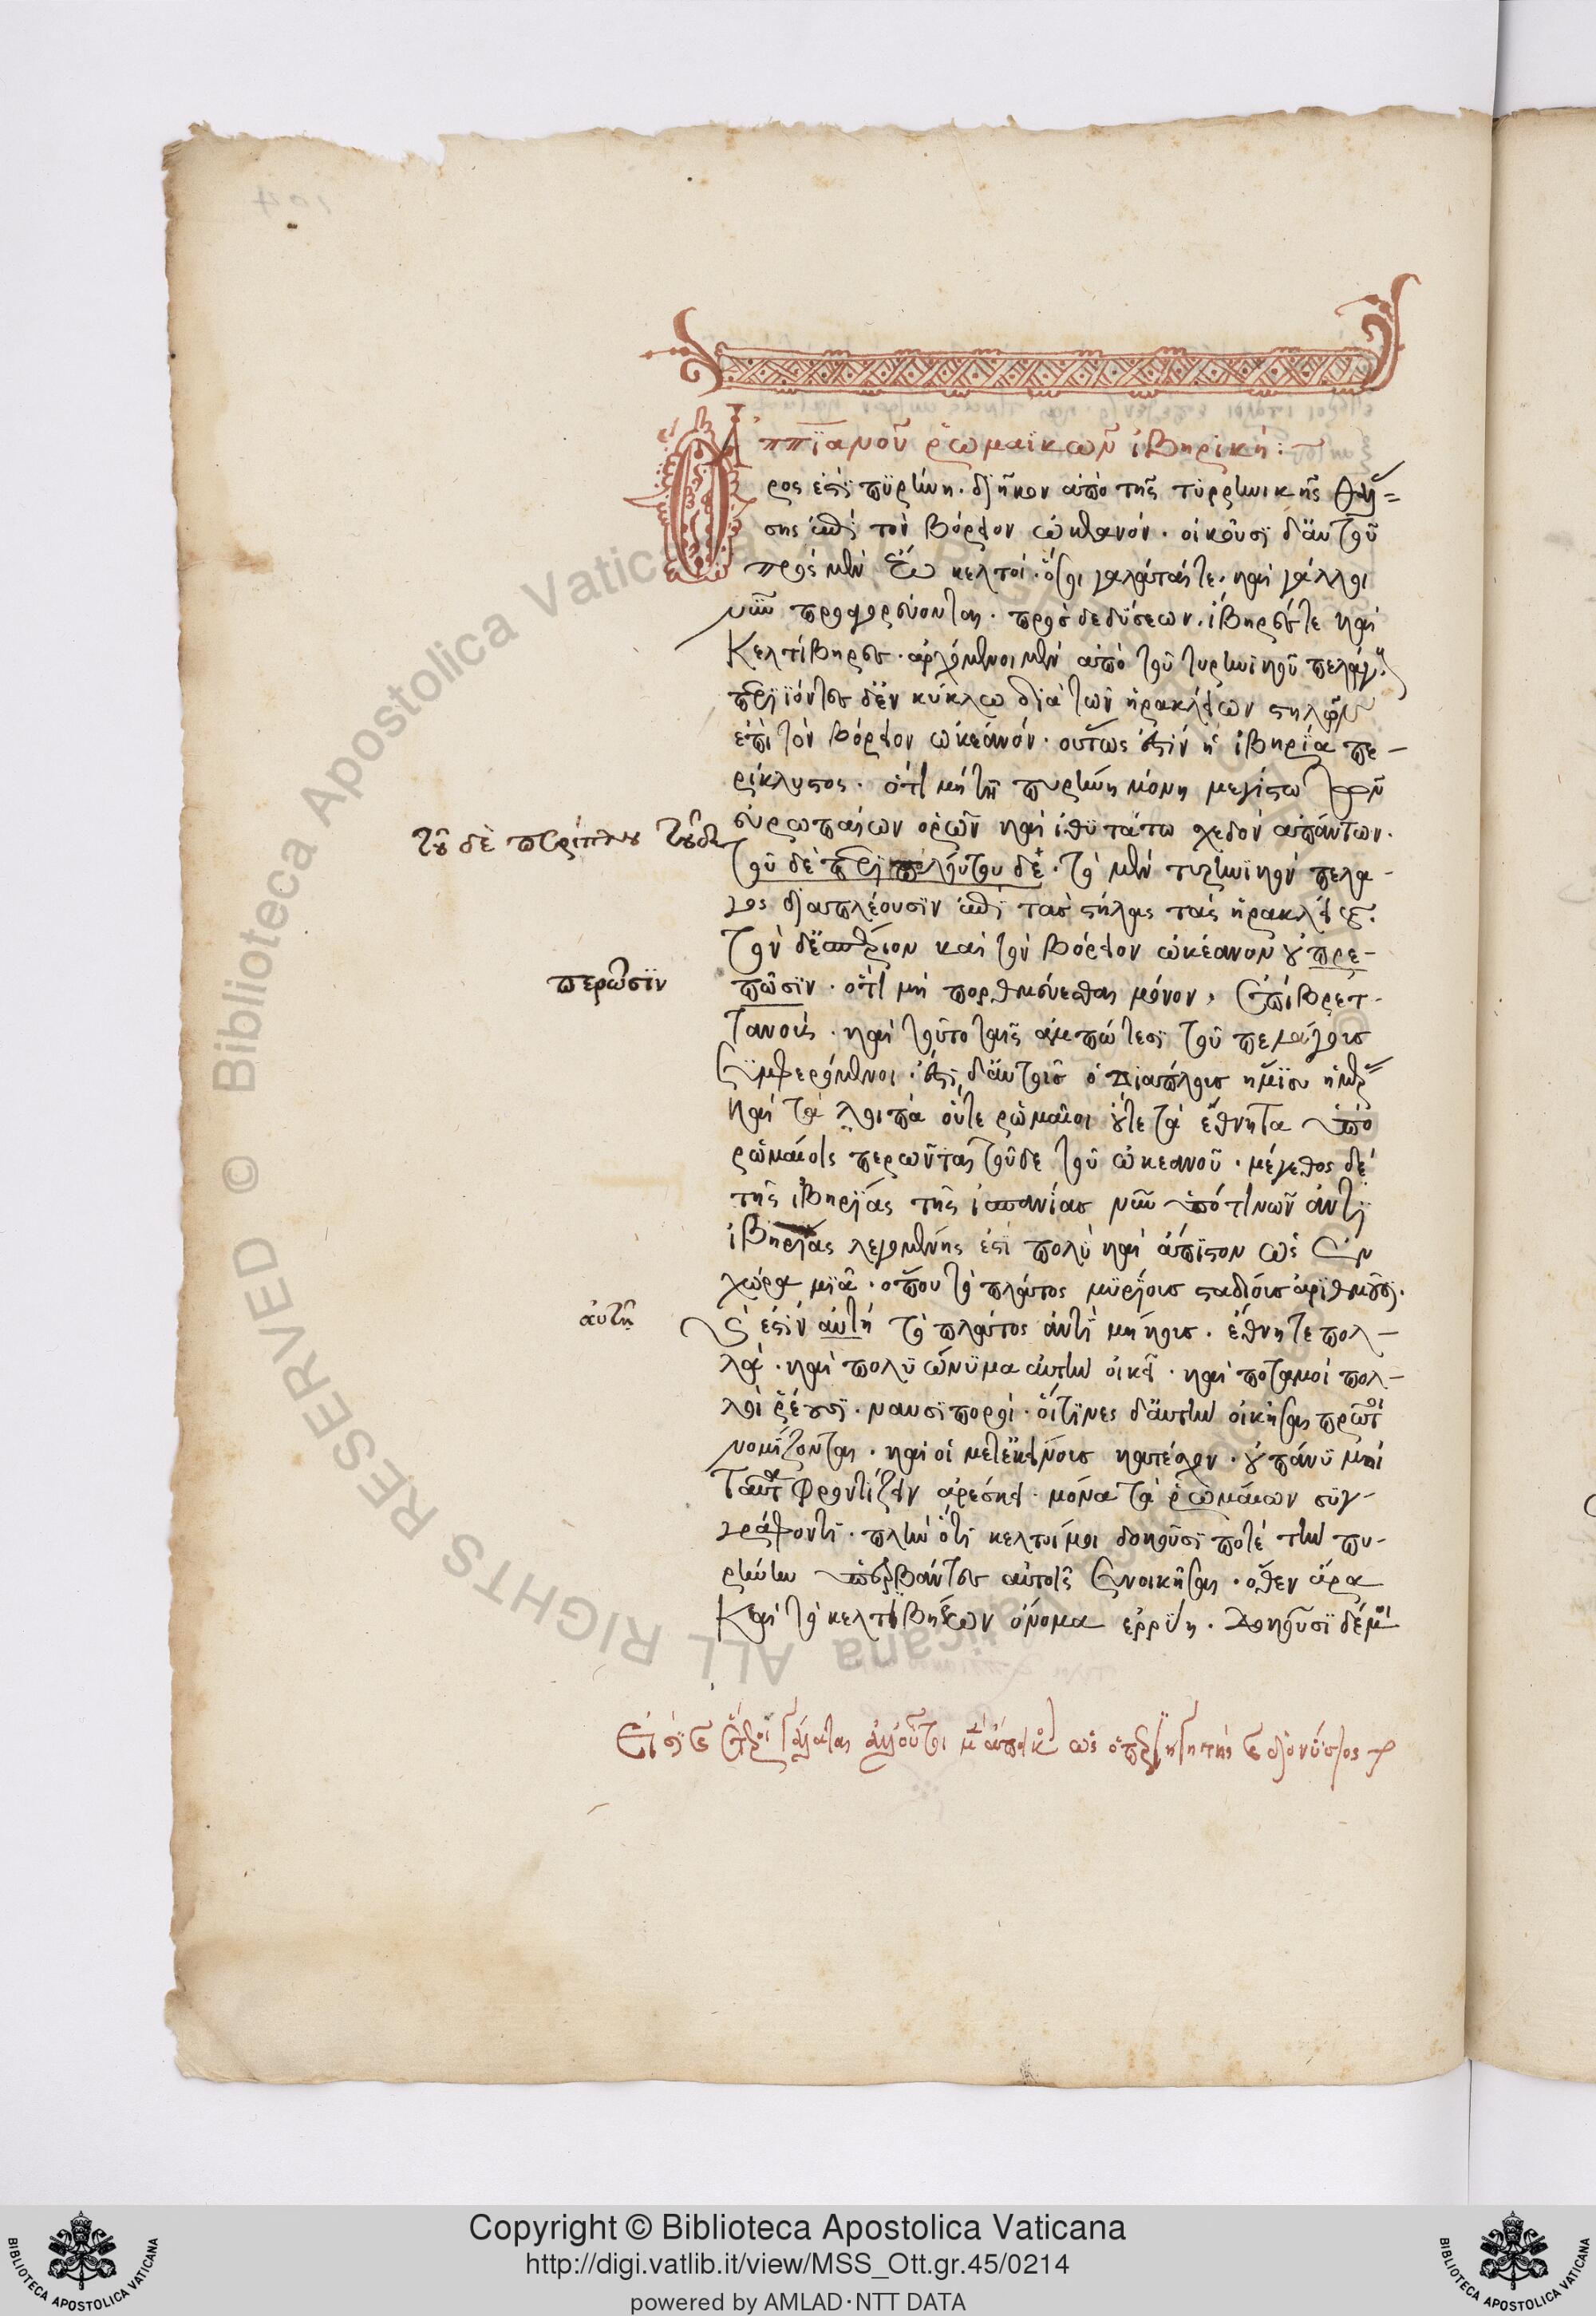 Ἀππϊανοῦ ῥωμαϊκῶν ἰβηρικὴ:
Ὄρος ἐστὶ πϋρήνη. διῆκον ἀπὸ τῆς τϋρρηνικῆς θαλάσ=
σης ἐπὶ τὸν βόρειον ὠκεανόν. οἰκοῦσϊ δ᾽ αὐτοῦ
πρὸς μὲν ἕω κελτοί. ὅσοι γαλάται τε. καὶ γάλλοι
νῦν προσαγορεύονται. πρὸς δὲ δύσεων. ἴβηρές τε καὶ
Κελτίβηρες. ἀρχόμενοι μὲν ἀπὸ τοῦ τυρηνικοῦ πελάγους
περιϊόντες δ᾽ ἐν κύκλω διὰ τῶν ἡρακλείων στηλῶν
ἐπὶ τὸν βόρειον ὠκεάνόν. οὕτως ἐστὶν ἡ ἰβηρία πε-
ρίκλυστος. ὅτι μὴ τῆ πυρήνη μόνη μεγίστω τῶν
εὐρωπαίων ὀρῶν καὶ ἰθϋτάτω σχεδὸν ἁπάντων.
τοῦ δὲ περίπλου τοῦδε
τοῦ δὲ περὶ πελούτου δὲ. τὸ μὲν τυρηνικὸν πέλα-
γος διαπλέουσϊν ἐπὶ τὰς στήλας τὰς ἡρακλείους.
Τὸν δ᾽ ἑσπέριον καὶ τὸν βόρειον ὠκέανον οὐ πρε-
περῶσϊν
πῶσϊν. ὅτι μὴ πορθμεύεσθαι μόνον. ἐπὶ βρετ-
τανοὺς. καὶ τοῦτο ταῖς ἀμπώτεσι τοῦ πελάγους
συμφερόμενοι. ἔστι δ᾽ αὐτοῖς ὁ διάπλους ἥμισυ ἡμέρας
καὶ τὰ λοιπὰ οὔτε ῥωμαῖοι οὔτε τὰ ἔθνη τὰ ὑπὸ
ῥωμαίοις περῶνται τοῦδε τοῦ ὠκεανοῦ. μέγεθος δὲ
τῆς ἰβηρίας τῆς ἱσπανίας νῦν ὑπό τινῶν ἀντὶ
ἰβηρίας λεγομένης ἐστὶ πολὺ καὶ ἄπιστον ὡς ἐν
χώρα μϊᾶ. ὅπου τὸ πλάτος μϋρίους σταδίους ἀριθμοῦσι.
αὐτῆ
καὶ ἐστὶν αὐτὴ τὸ πλάτος ἀντὶ μήκους. ἔθνη τε πολ-
λὰ. καὶ πολϋώνϋμα αὐτὴν οἰκεῖ. καὶ ποταμοὶ πολ-
λοὶ ῥέουσϊ. ναυσίποροι. οἵτϊνες δ᾽ αὐτὴν οἰκῆσαι πρῶτοι
νομίζονται. καὶ οἱ μετ᾽ ἐκείνους κατέσχον. οὐ πάνυ μοι
ταῦτα φροντίζειν ἀρέσκει. μόνα τὰ ῥωμαίων συγ-
γράφοντι. πλὴν ὅτι κελτοί μοι δοκοῦσί ποτὲ τὴν πυ-
ρήνην ὑπερβάντες αὐτοῖς συνοικῆσαι. ὅθεν ἄρα
Καὶ τὸ κελτιβήρων ὄνομα ἐρρύη. Δοκοῦσϊ δέ μοι